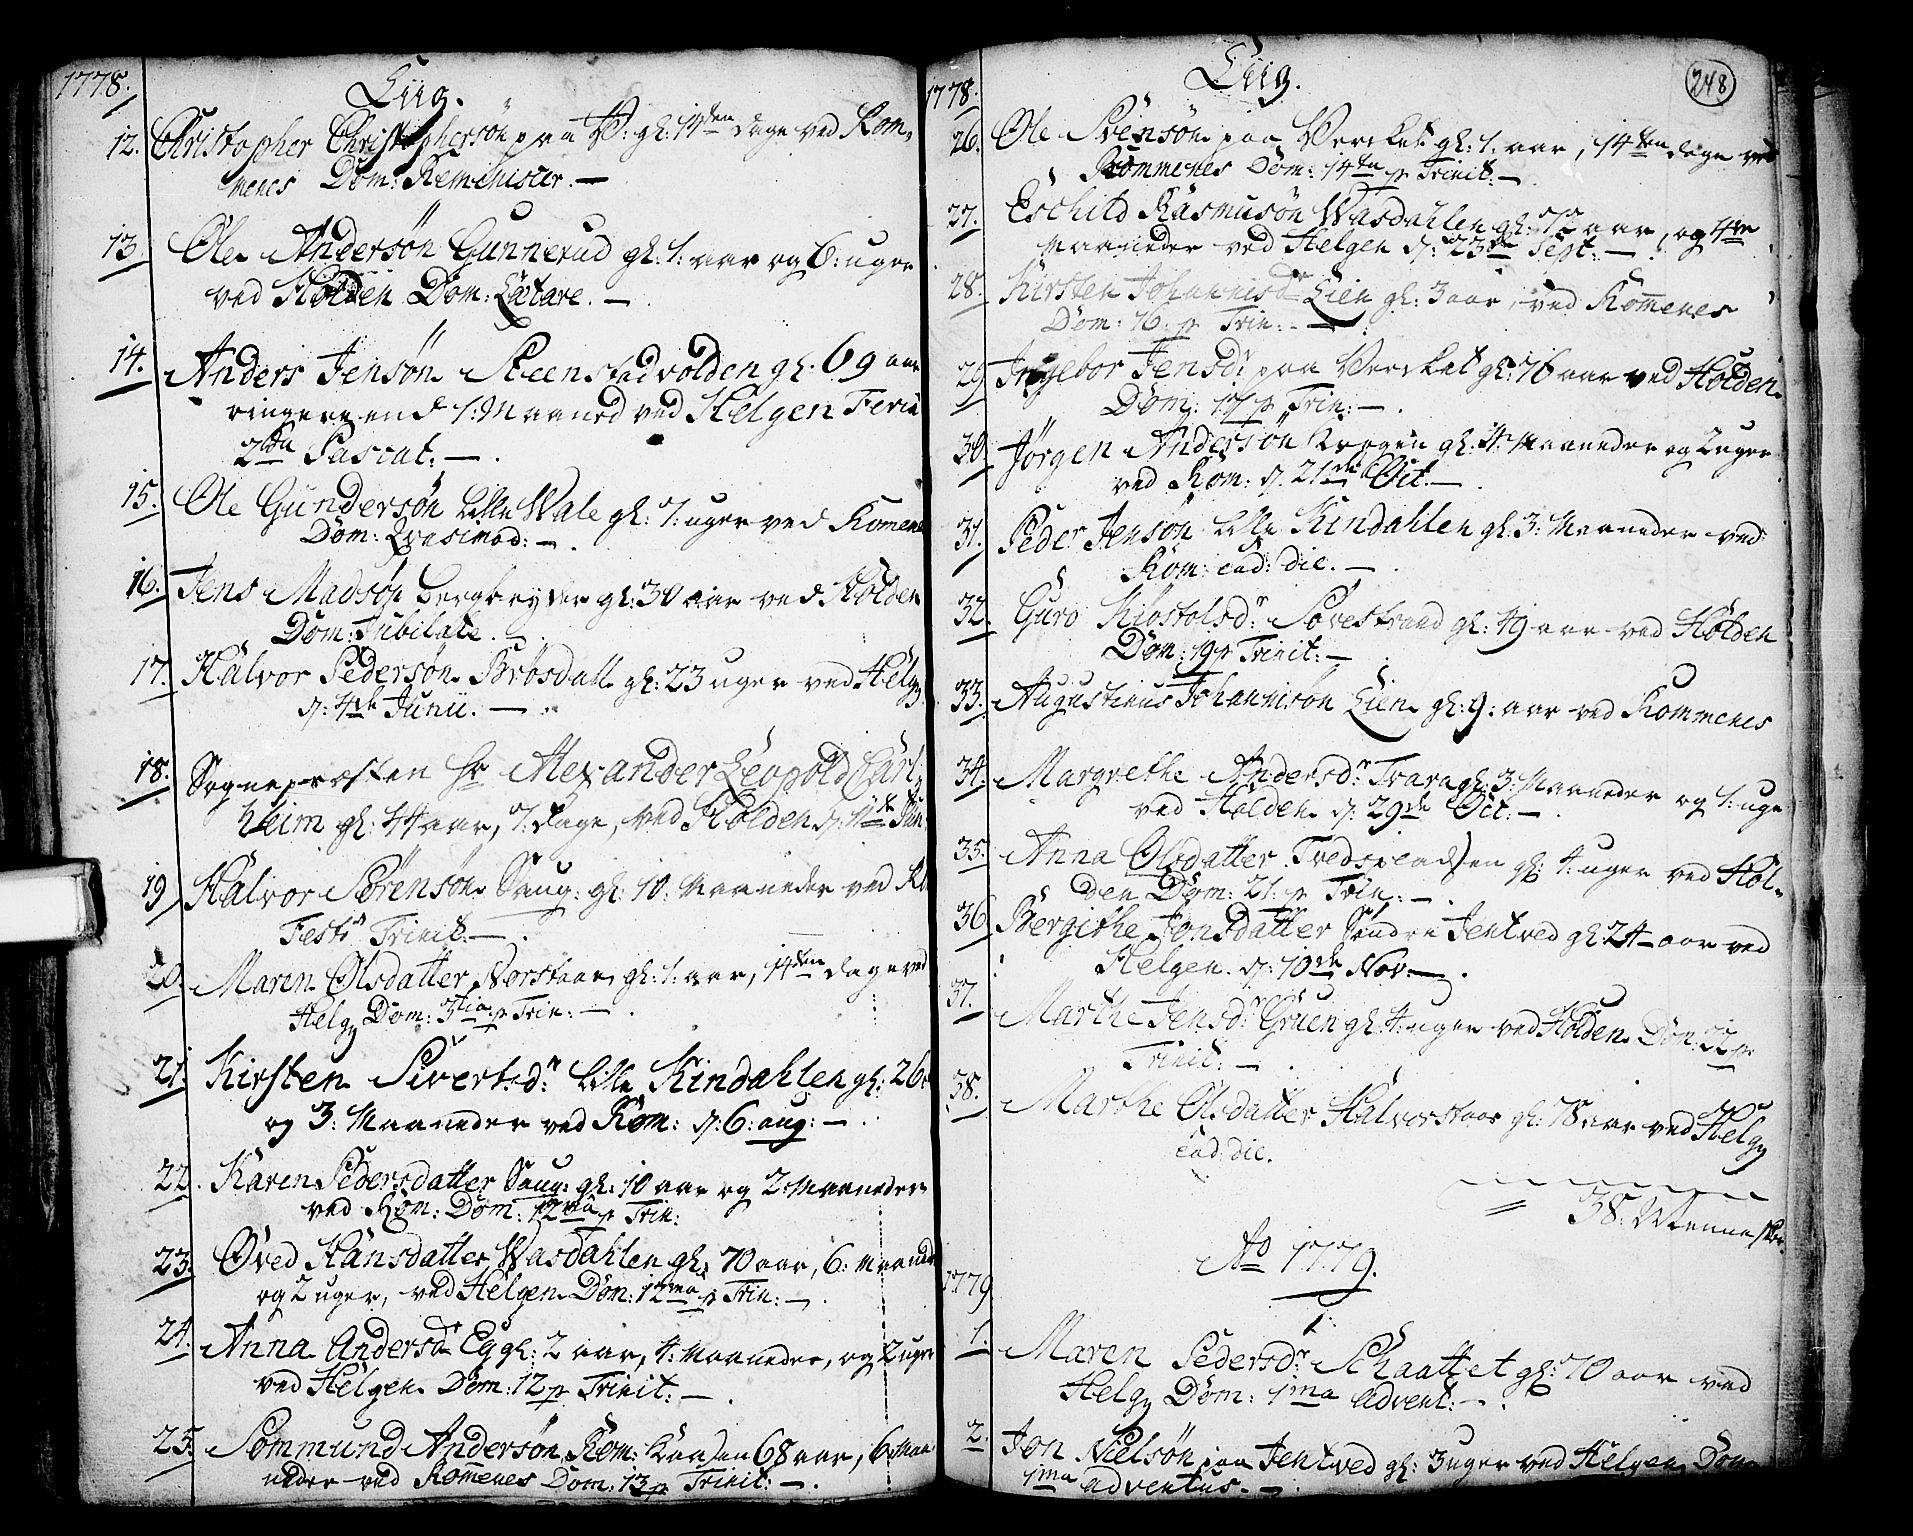 1778. Liig.
12. Christopher Christophersön paa V: gl: 14ten dage ved Rom-
menes Dom: Reminiscer. —
13. Ole Andersön Gunnerud gl: 1: aar og 6: uger
ved Holden Dom: Lætare. —
14. Anders Jensön Steenstadvolden gl. 69 aar
ringere end 1: Maaned ved Helgen Feria
2da Pascat: —.
15. Ole Gundersön Lille Wale gl: 7: uger ved Romenes
Dom: Qvasimod: —.
16. Jens Madsön bergbryder gl: 30 aar ved Holden
Dom: Jubilate. —
17. Halvor Pedersön Brösdall gl: 23 uger ved Helg
d: 4de Junii. —.
18. Sognepræsten hr Alexander Leopold Carl
heim gl: 44 aar, 7: dage, ved Holden d: 11te Jun
19 Halvor Sörensön Saug: gl: 10: Maaneder ved
Festo Trinit. —.
20. Maren Olsdatter Norstaae gl: 1: aar, 14ten dage ved
Helg Dom: 3tia p Trin: —.
21 Kirsten Sivertsdr: Lille Kindahlen gl: 26
og 3: Maaneder ved Rom: d: 6: aug: —.
22. Karen Pedersdatter Saug: gl: 10 aar og 2: Maaneder
ved Rom: Dom: 12ma p Trin:
23. Oved Hansdatter Wasdahlen gl: 70 aar, 6: Maaneder
og 2 uger, ved Helgen Dom: 12ma p Trin: —.
24. Anna Andersdr Eg gl: 2 aar, 4: Maaneder, og 2 uger
ved Helgen Dom: 12 p Trinit: —.
25. Sommund Andersön Rom: 68 aar, 6 Maa
neder ved Romenes Dom: 13 p Trinit: —.
1778. Liig. 248
26. Ole Svensön paa Verket gl: 1. aar, 14ten dage ved
Rommenes Dom: 14tn p Trinit: —.
27. Eschild Rasmusön Wasdahlen gl: 72 aar, og 4re
Maaneder ved Helgen d: 23de Sept: —.
28. Kirsten Johannisdr Lien gl: 3 aar, ved Romenes
Dom: 16. p Trin: —.
29 Ingebor Jensdr paa Verket gl: 76 aar ved Holden
Dom: 17 p Trin: —.
30 Jörgen Andersön Krogen gl: 4: Maaneder og 2 uger
ved Rom: d. 21de Oct. —.
31. Peder Jensön Lille Kindahlen gl: 3: Maaneder ved
Rom: ead: die. —.
32. Guro Kiostolsdr: Sovestrand gl: 49 aar ved Holden
Dom: 19 p Trinit: —.
33. Augustinus Johannisön Lien gl: 9: aar ved Rommenes
34. Margrethe Andersdr: gl: 3: Maaneder og 1: uge
ved Holden d: 29de Oct: —.
35. Anna Olsdatter gl: 4: uger ved Hol-
den Dom: 21. p Trin —.
36 Bergithe Jonsdatter Söndre Jentved gl 24 aar ved
Helgen. d: 10de Nov. —.
37. Marthe Jensdr Gruen gl: 4: uger ved Holden Dom: 22 p
Trinit: —.
38. Marthe Olsdatter Halvorstaae gl: 78 aar ved Helg
ead: die.
38: Mennesker.
Ao 1779.
1779
1. Maren Pedersdr Schaattet gl: 70 aar ved
Helg Dom: 1ma Advent: —.
2. Jon Nielsön paa Jentved gl: 3 uger ved Helgen Dom:
1ma adventus. —.